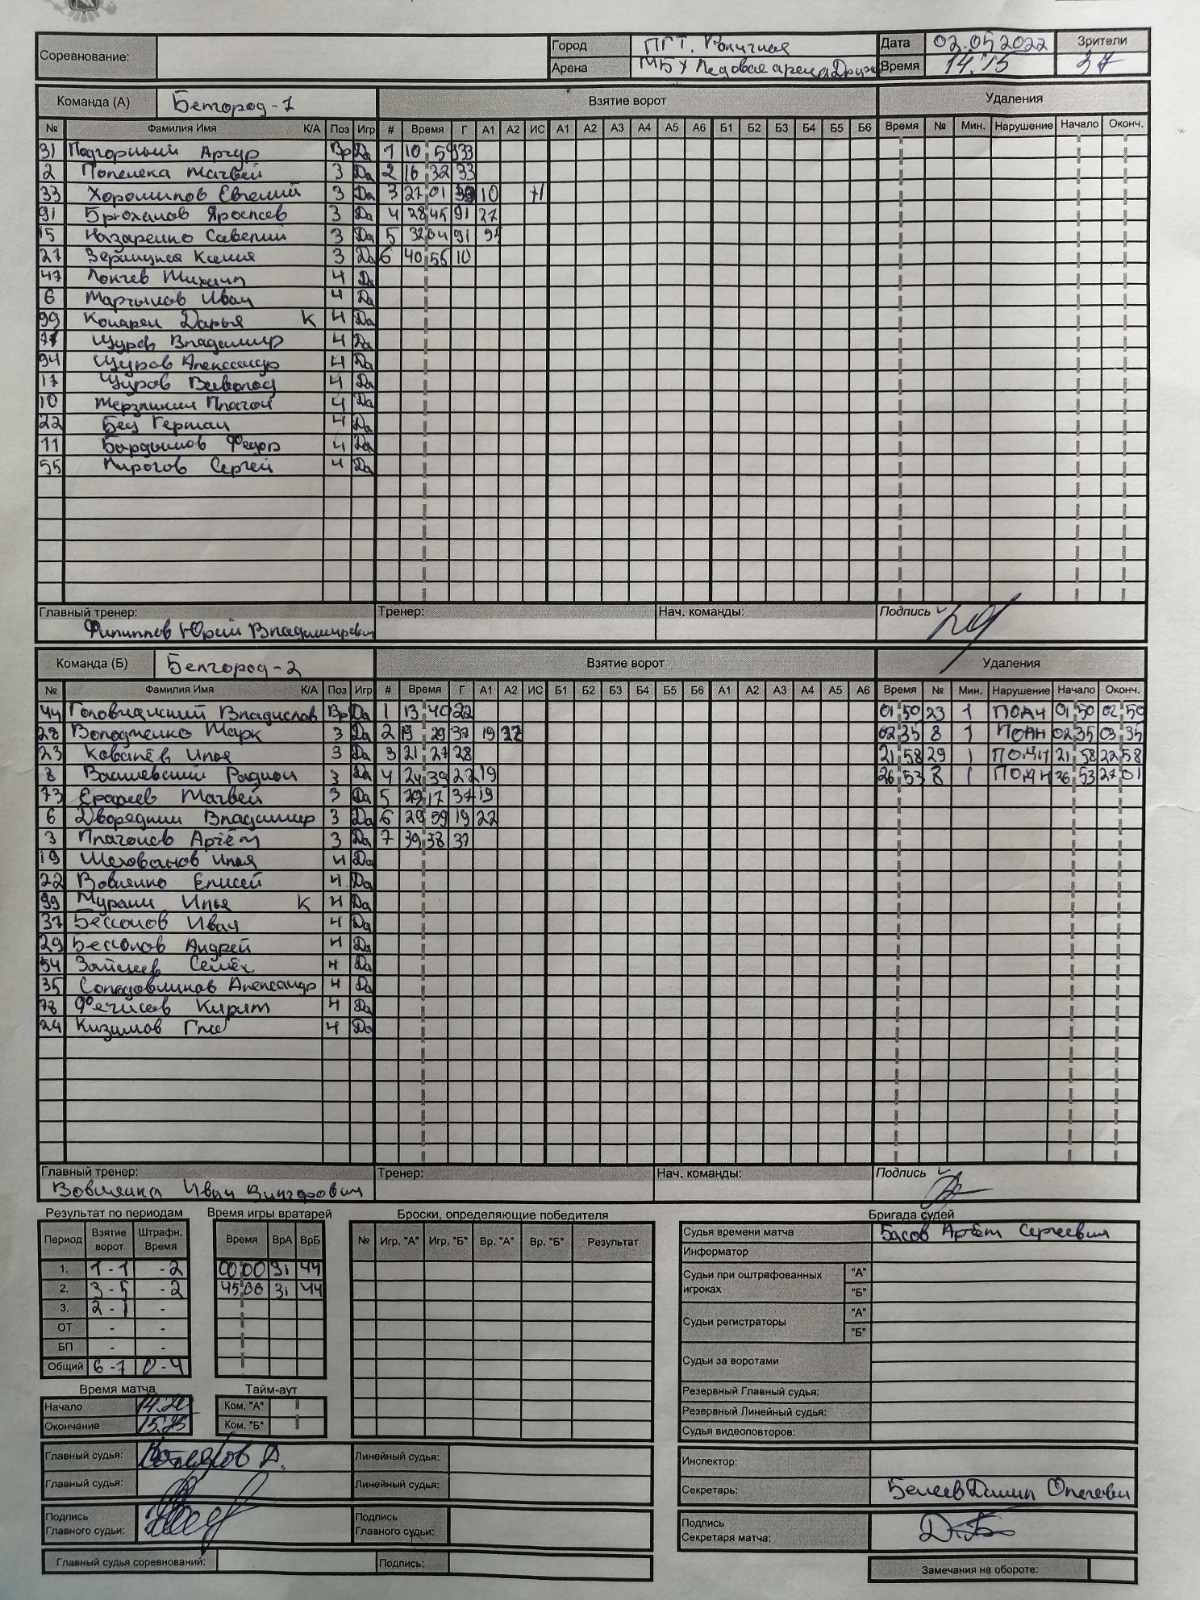 Соревнование: Город ПГТ. Дата 02.05.2022 Зрители
Арена МБУ Ледовая арена Время 14:15 37
Команда (А) Белгород-1 Взятие ворот Удаления
№ Фамилия Имя К/А Поз Игр # Время Г А1 А2 ИС А1 А2 А3 А4 А5 А6 Б1 Б2 Б3 Б4 Б5 Б6 Время № Мин. Нарушение Начало Оконч.
31 Подгорный Артур Вр Да 1 10 59 33
2 Попелека Матвей 3 Да 2 16 32 33
33 Хорошилов Евгений 3 Да 3 27 01 39 10
91 Брюханов Ярослав 3 Да 4 28 45 91 27
15 Назаренко Савелий 3 Да 5 32 04 91
27 Ксения 3 Да 6 40 55 10
47 Лонгев Михаил 4 Да
6 Мартынов Иван 4 Да
99 Конарев Дарья К 4 Да
77 Щуров Владимир 4 Да
94 Щуров Александр 4 Да
17 Щуров Всеволод 4 Да
10 Мерзликин Платон 4 Да
22 Бец Герман 4 Да
11 Бардынов Федор 4 Да
55 Пирогов Сергей 4 Да
Главный тренер: Тренер: Нач. команды: Подпись
Филиппов Юрий Владимирович
Команда (Б) Белгород-2 Взятие ворот Удаления
№ Фамилия Имя К/А Поз Игр # Время Г А1 А2 ИС Б1 Б2 Б3 Б4 Б5 Б6 А1 А2 А3 А4 А5 А6 Время № Мин. Нарушение Начало Оконч.
44 Владислав Вр Да 1 13 40 22 01 50 23 1 ПОДН 01 50 02 50
28 Володченко Марк 3 Да 2 19 29 37 19 22 02 35 8 1 ПОДН 02 35 03 35
23 Ковалёв Илья 3 Да 3 21 27 28 21 58 29 1 ПОДН 21 58 22 58
8 Василевский Радион 3 Да 4 24 39 22 19 26 53 8 1 ПОДН 26 53 27 01
73 Ерофеев Матвей 3 Да 5 29 17 37 19
6 Дворядкин Владимир 3 Да 6 29 59 19 22
3 Платонов Артём 3 Да 7 39 38 37
19 Шехованов Илья 4 Да
22 Вовченко Елисей 4 Да
99 Мурашн Илья К 4 Да
37 Бессонов Иван 4 Да
29 Бессонов Андрей 4 Да
54 Зайцев Семён 4 Да
35 Солодовников Александр 4 Да
78 Фетисов Кирилл 4 Да
24 Кизимов Глеб 4 Да
Главный тренер: Тренер: Нач. команды: Подпись
Иван Викторович
Результат по периодам Время игры вратарей Броски, определяющие победителя Бригада судей
Период Взятие ворот Штрафн. Время Время ВрА ВрБ № Игр. "А" Игр. "Б" Вр. "А" Вр. "Б" Результат
Судья времени матча Басов Артём Сергеевич
Информатор
1. 1 - 1 - 2 00:00 31 44
Судьи при оштрафованных игроках "А" "Б"
2. 3 - 5 - 2 45:00 31 44
3. 2 - 1 -
Судьи регистраторы "А" "Б"
ОТ - -
БП - -
Судьи за воротами
Общий 6 - 7 0 - 4
Время матча Тайм-аут
Резервный Главный судья:
Начало 14:20 Ком. "А"
Резервный Линейный судья:
Окончание 15:25 Ком. "Б"
Судья видеоповторов:
Главный судья: Линейный судья: Инспектор:
Главный судья: Линейный судья: Секретарь: Данил Олегович
Подпись Главного судьи: Подпись Главного судьи: Подпись Секретаря матча:
Главный судья соревнований: Подпись: Замечания на обороте: